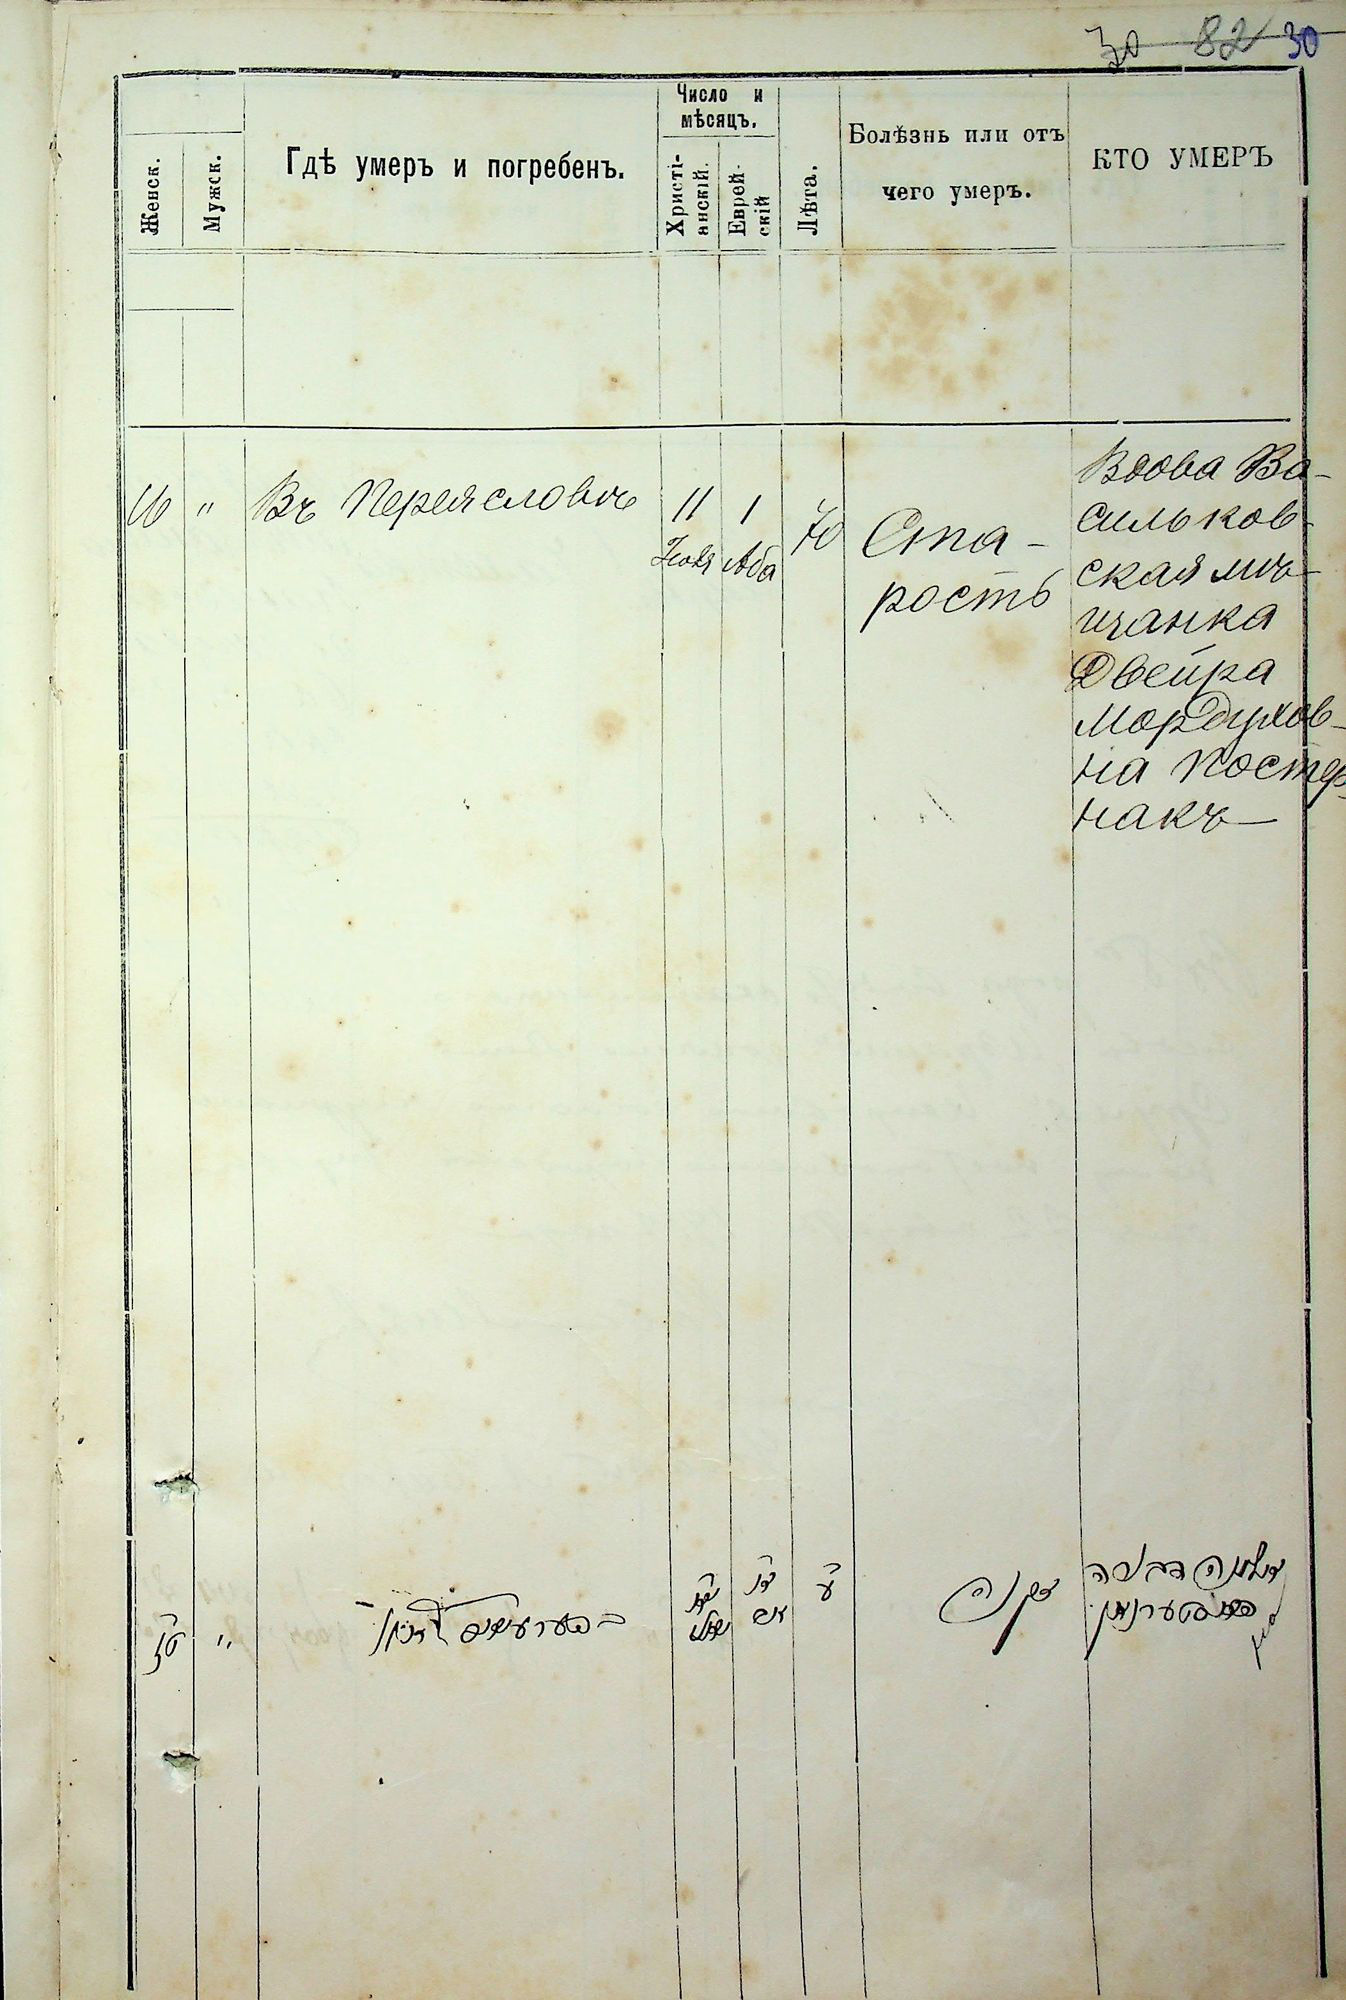 30 82 30
Женск.
Мужск.
Гдѣ умеръ и погребенъ.
Число и
мѣсяцъ.
Христі-
анскій.
Еврей-
скій
Лѣта.
Болѣзнь или отъ
чего умеръ.
КТО УМЕРЪ
16
"
Въ Переяславѣ
11
Іюля
1
Аба
70
Ста-
рость
Вдова Ва-
сильков-
ская мѣ-
щанка
Двейра
Мордухов-
на Постер-
накъ
טז
"
יא
יולי
א׳
אב
ע׳
זקנה
אלמנה דבורה